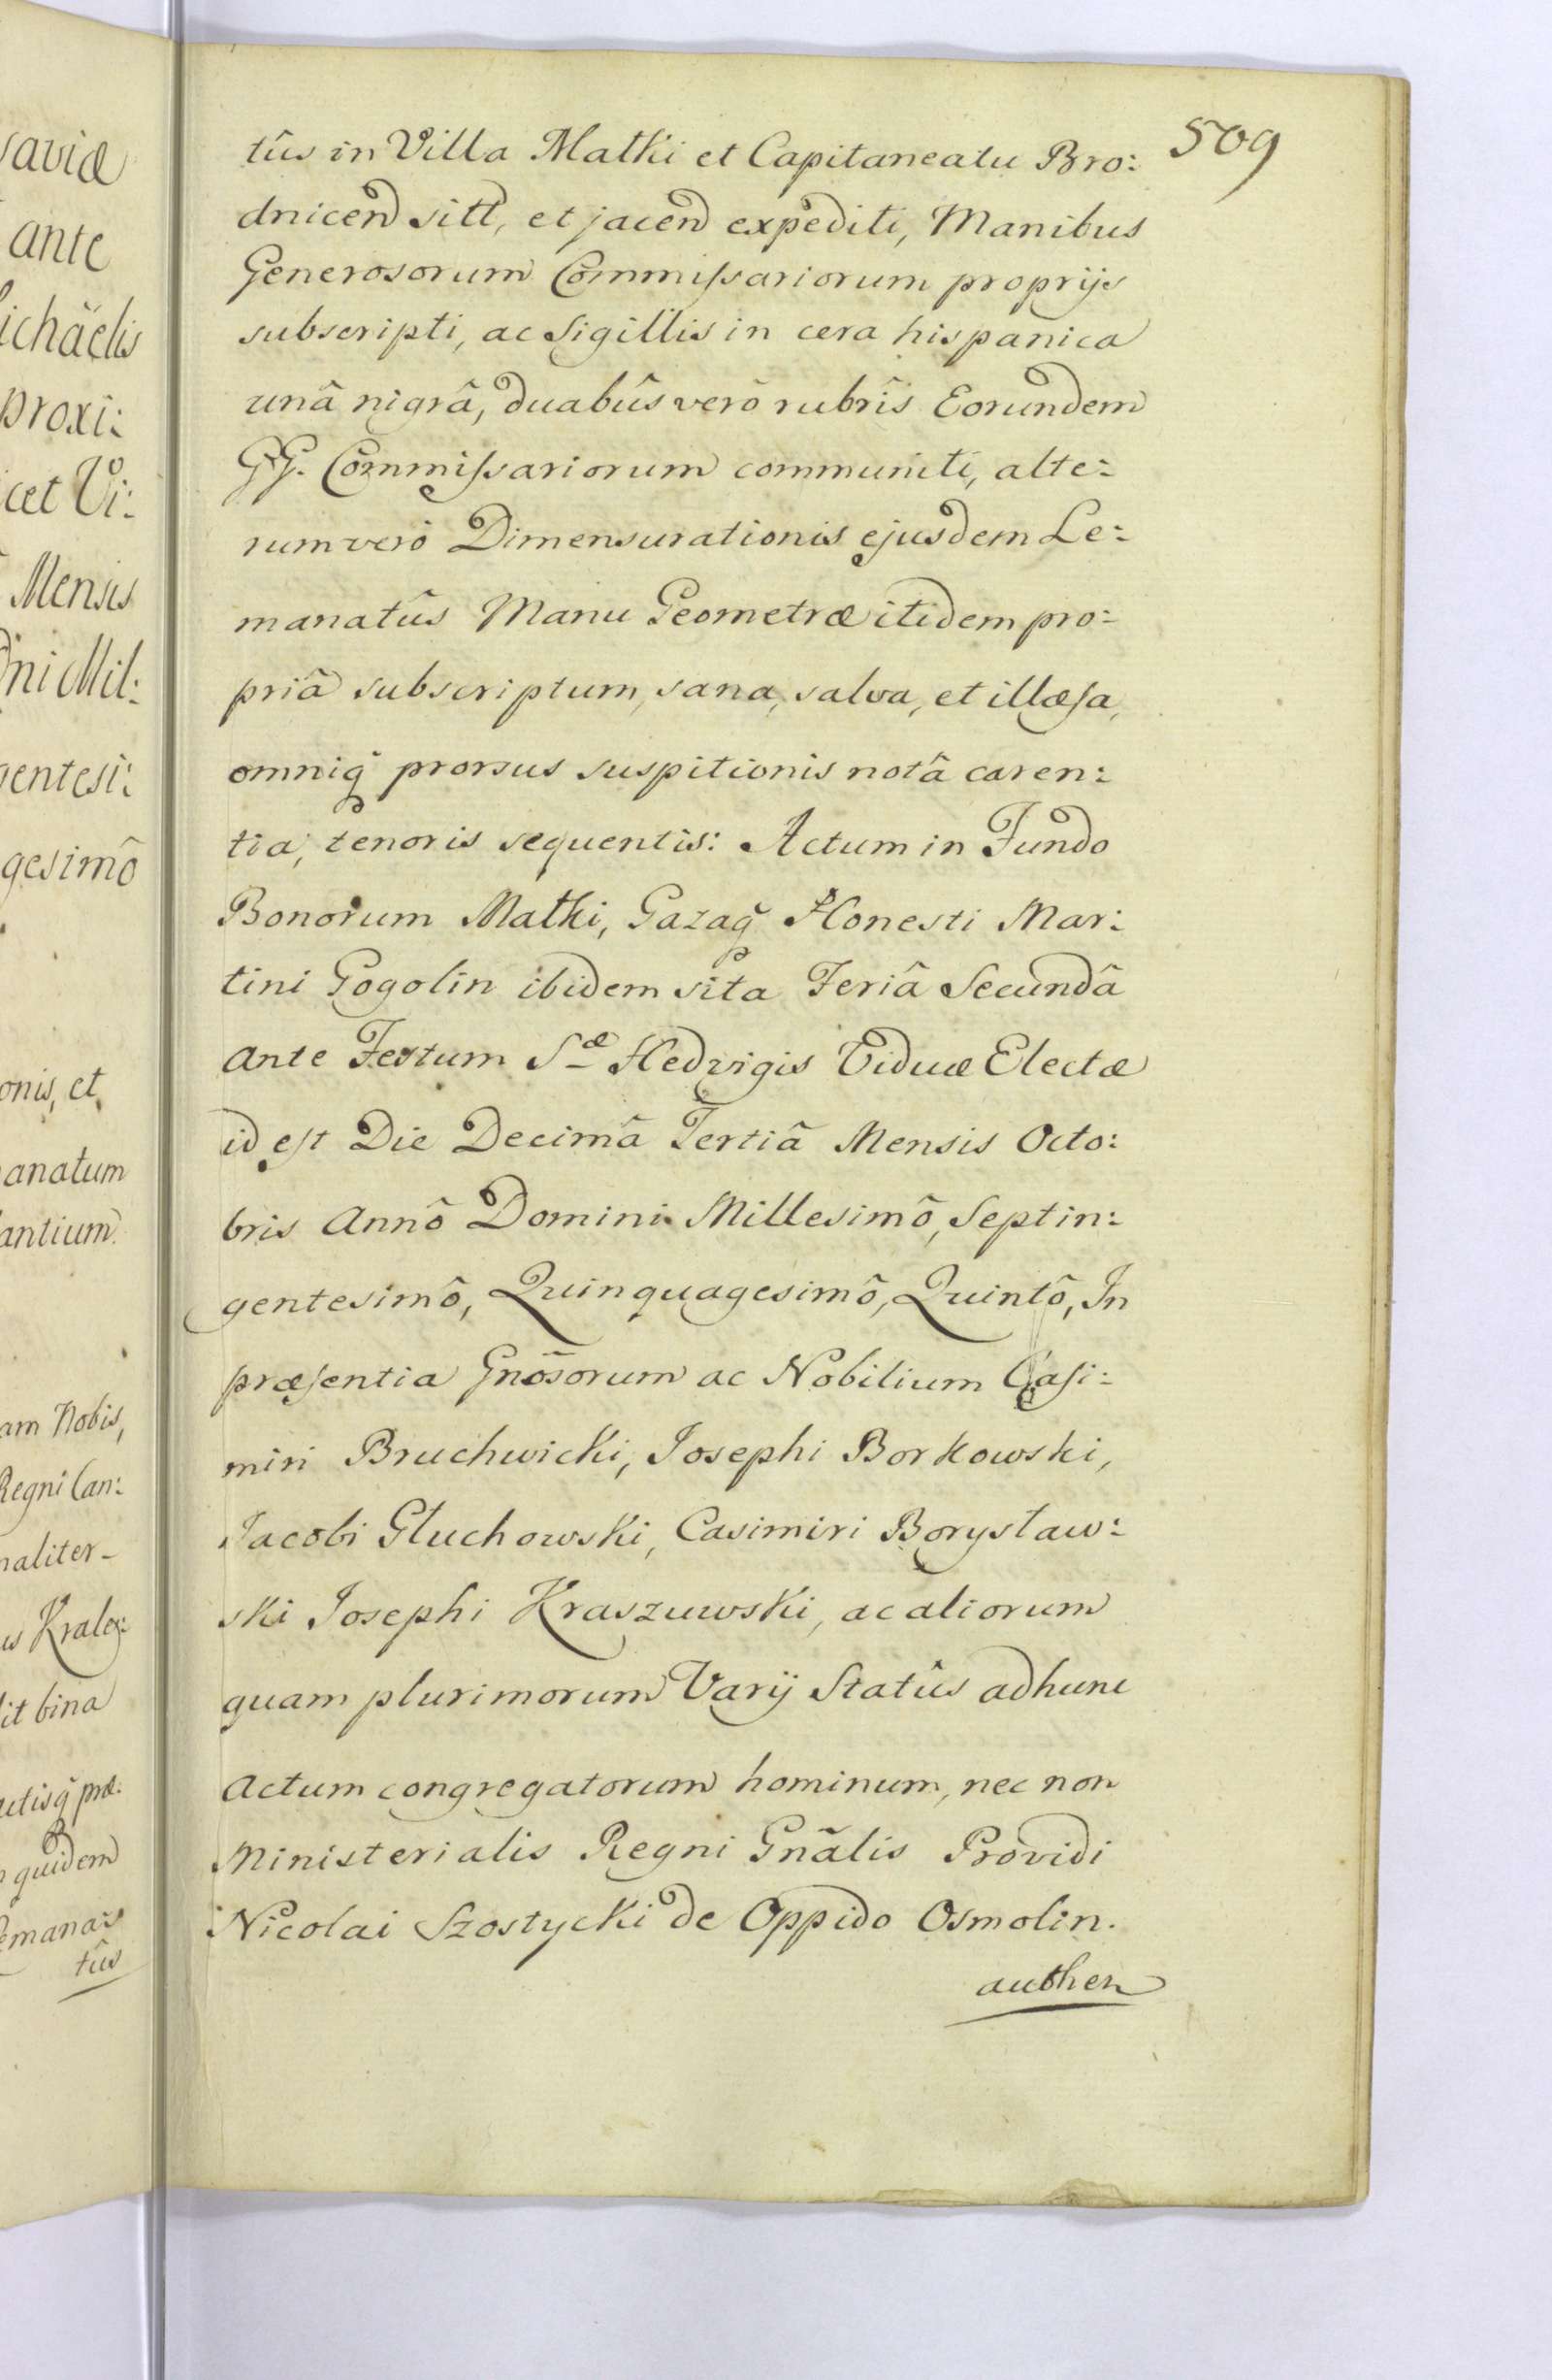 509
tûs in Villa Matki et Capitaneatu Bro:
dnicen sitt, et jacen expediti, Manibus
Generosorum Commiſsariorum proprijs
subscripti, ac Sigillis in cera hispanica
unâ nigrâ, duabûs verô rubrîs Eorundem
GG. Commiſsariorum communiti, alte:
rum verò Dimensurationis ejusdem Le:
manatûs Manu Geometræ itidem pro:
priâ subscriptum, sana, salva, et illæſa,
omniq̃ prorsus suspitionis notâ caren:
tia, tenoris sequentis: Actum in Fundo
Bonorum Matki, Gazaq̃ Honesti Mar:
tini Gogolin ibidem sita Feriâ Secundâ
ante Festum Sæ Hedvigis Viduæ Electæ
id eſt Die Decimâ Tertiâ Mensis Octo:
bris Annô Domini Millesimô, Septin:
gentesimô, Quinquagesimô, Quintô, In
præſentia Gnõsorum ac Nobilium Caſi:
miri Bruchwicki, Josephi Borkowski,
Jacobi Głuchowski, Casimiri Borysław:
ski Josephi Kraszuwski, ac aliorum
quam plurimorum Varij Statûs ad hunc
Actum congregatorum hominum, nec non
Ministerialis Regni Gnãlis Providi
Nicolai Szostycki de Oppido Osmolin.
authen